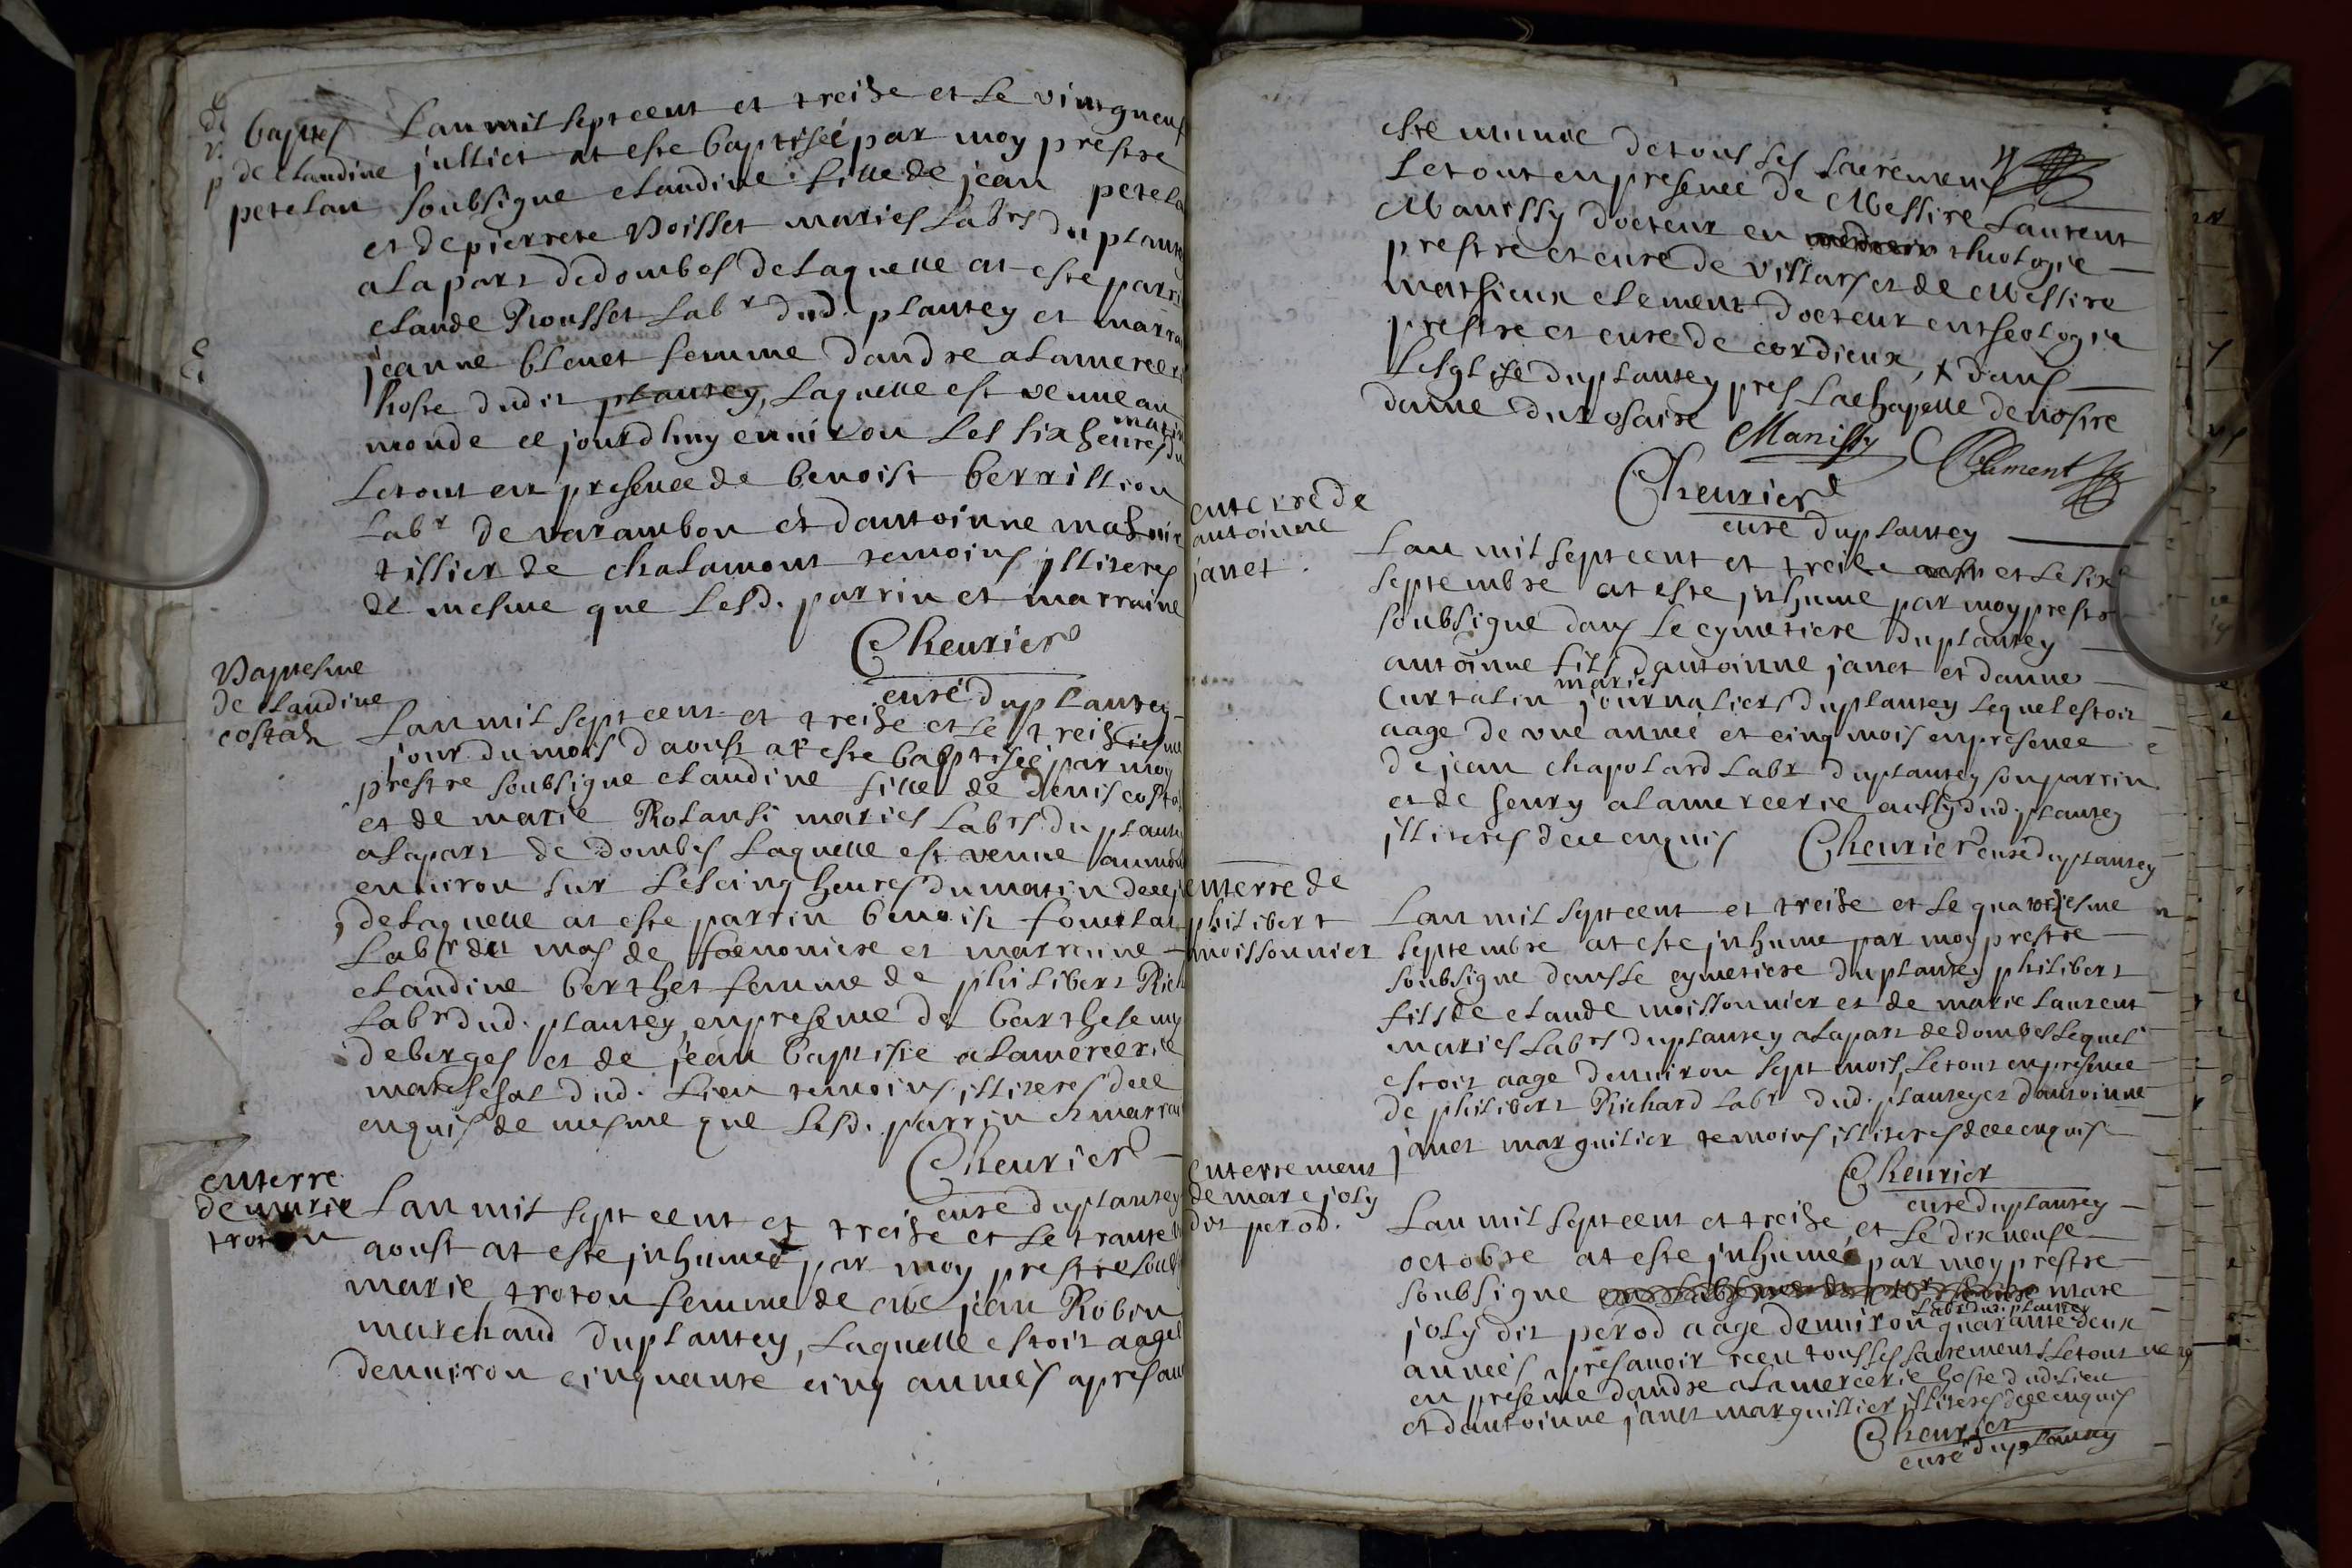 baptes
de claudine
petelan
Lan mil sept cent et treize et le vintgneuf
julliet at este baptiseé par moy prestre
soubsigne claudine fille de jean petela
et de pierrete Voisset mariés labrs du plante
a la part de dombes de laquelle at este parri
claude Rousset labr dud. plantey et marra
jeanne blenet femme dandre alamercer
hoste dudit plantey, laquelle est venue au
monde ce jourdhuy environ les six heures du
matin
Le tout en presence de benoist berrillion
labr de varambon et dantoinne
tillier de chalamont temoins illiteres
de mesme que lesd. parrin et marraine
Cheurier
curé du plantey
Vaptesme
de claudine
costaz
Lan mil sept cent et treize et le treiziesme
jour du mois daoust at este baptiseé par moy
prestre soubsigne claudine fille de denis costa
et de marie Rolansi mariés labrs du plante
a la part de dombes laquelle est venue au mon
environ sur les cinq heures du matin
de laquelle at este parrin benoist
labr du mas de et marraine
claudine berthet femme de philibert Rich
labr dud. plantey en presence de barthelemy
deberges et de jean baptiste alamercerie
mareschal dud. lieu temoins illiteres dece
enquis de mesme que lesd. parrin et marrai
Cheurier
curé du plantey
enterre
de marie
troton
Lan mil sept cent et treize et le trante
aoust at este inhumeé par moy prestre soub
marie troton femme de me jean Robin
marchand du plantey, laquelle estoit aageé
denuiron cinquante cinq années apres au
este munie de tous ses sacremens
Le tout en presence de Messire Laurent
Manissy docteur en theologie
prestre et curé de villars et de Messire
mathieux clement docteur en theologie
prestre et curé de cordieux, dans
lesglise du plantey pres la chapelle de nostre
dame du rosaire
Manissy
Clement
Cheurier
curé du plantey
enterre de
antoinne
janet
Lan mil sept cent et treize et le sixe
septembre at este inhume par moy prestre
soubsigne dans le cymetiere du plantey
antoinne fils dantoinne janet et danne
mariés
Curtalin journaliers du plantey lequel estoit
aage de une anneé et cinq mois en presence
de jean chapolard labr du plantey son parrin
et de henry alamercerie aussy dud. plantey
illiteres dece enquis Cheurier curé du plantey
enterre de
philibert
moissonnier
Lan mil sept cent et treize et le quatorziesme
septembre at este inhume par moy prestre
soubsigne dans le cymetiere du plantey philibert
fils de claude moissonnier et de marie laurent
mariés labrs du plantey a la part de dombes lequel
estoit aage denuiron sept mois, Le tout en presence
de philibert Richard labr dud. plantey et dantoinne
janet marguilier temoins illiteres dece enquis
Cheurier
curé du plantey
Enterrement
de marc joly
dit perod.
Lan mil sept cent et treize et le dixneufe
octobre at este inhumé par moy prestre
soubsigne marc
labr dud. plantey
joly dit perod aage denuiron quarante deux
années apres auoir receu tous ses sacremens Le tout
en presence dandre alamercerie hoste dud. lieu
et dantoinne janet marguillier illiteres dece enquis
Cheurier
curé du plantey